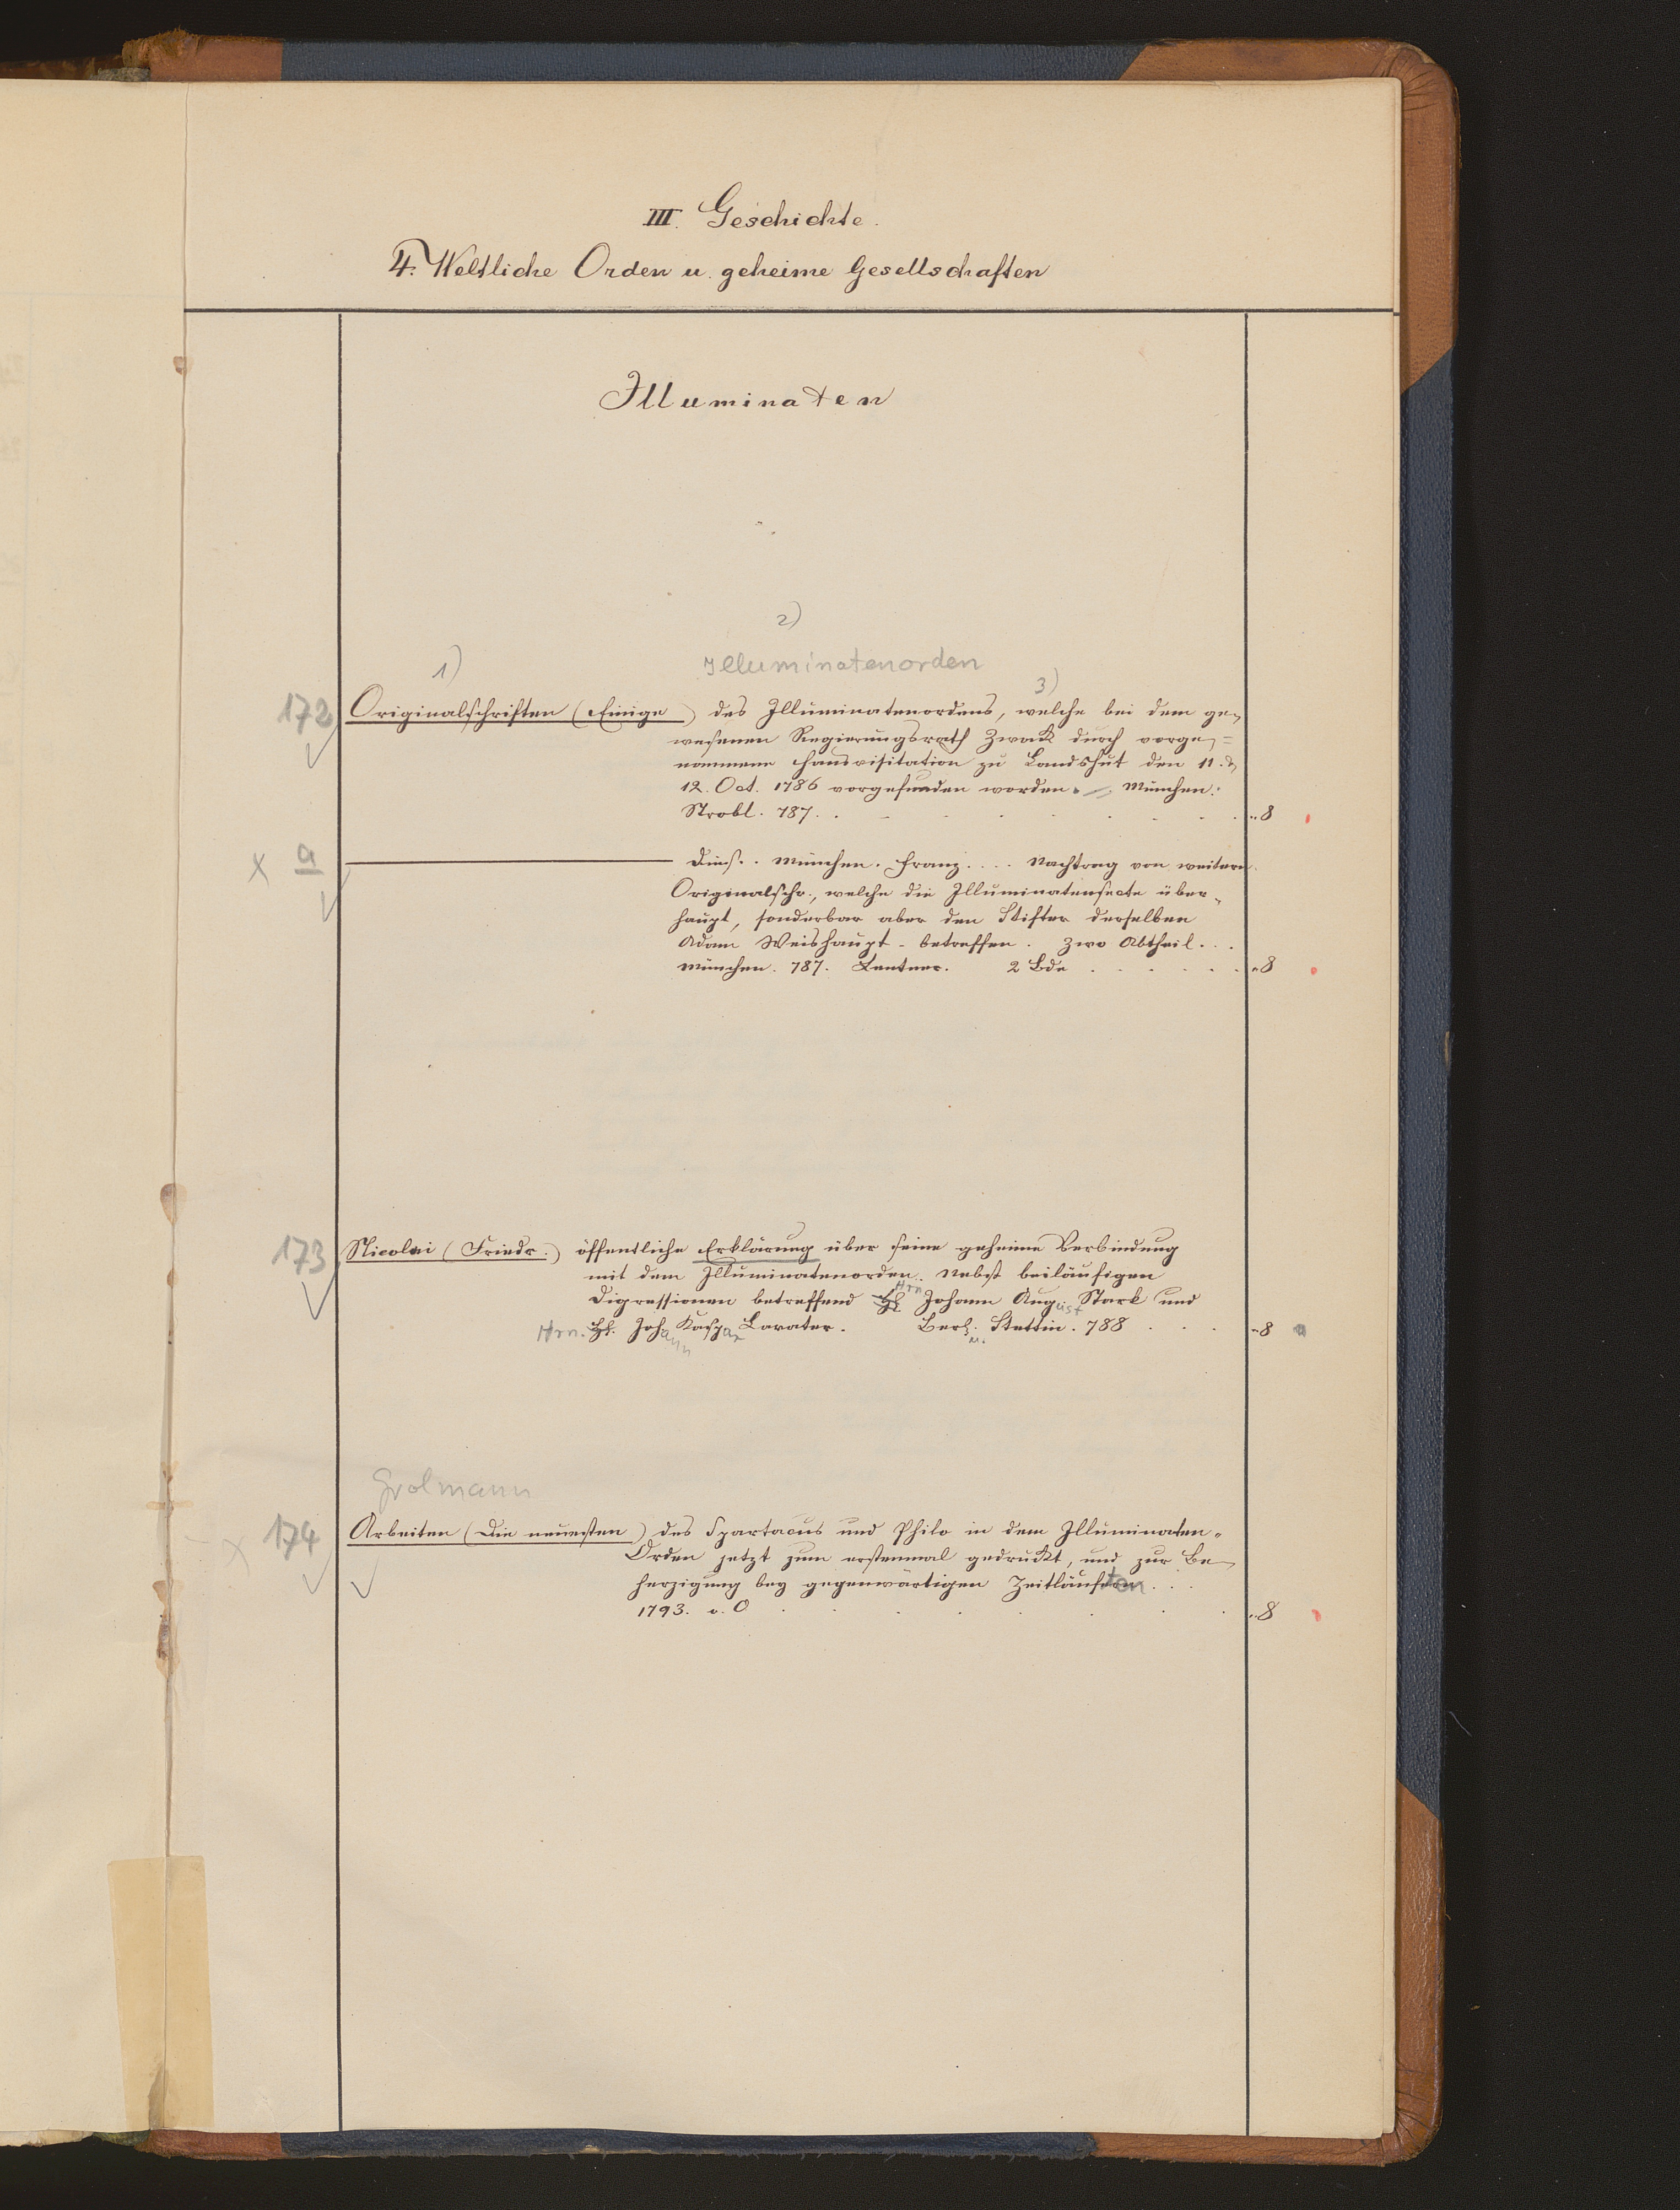 III. Geschichte.
4. Weltliche Orden u. geheime Gesellschaften
Illuminaten
2)
1) Illuminatenorden
3)
172 Originalschriften (Einige) des Illuminatenordens, welche bei dem ge-
wesenen Regierungsrath Zwack durch vorge=
nommene Hausvisitation zu Landshut den 11. &
12. Oct. 1786 vorgefunden worden. München.
Strobl. 787. . . . . . . . . „8
x a ——— Dies. . München. Franz. . . . Nachtrag von weitern
Originalschr., welche die Illuminatensecte über-
haupt, sonderbar aber den Stifter derselben
Adam Weishaupt - betreffen. Zwo Abtheil. . .
München. 787. Lentner. 2 Bde . . . . . . „8
173 Nicolai (Friedr.) öffentliche Erklärung über seine geheime Verbindung
mit dem Illuminatenorden. Nebst beiläufigen
Digressionen betreffend Hrn Johann August Stark und
Hrn. H. Johann Kaspar Lavater. Berl. u. Stettin. 788 . . . „8
Grolmann
x 174 Arbeiten (Die neuesten) des Spartacus und Philo in dem Illuminaten-
Orden jetzt zum erstenmal gedruckt, und zur Be-
herzigung bey gegenwärtigen Zeitläuften . . .
1793. o. O . . . . . . . . „8